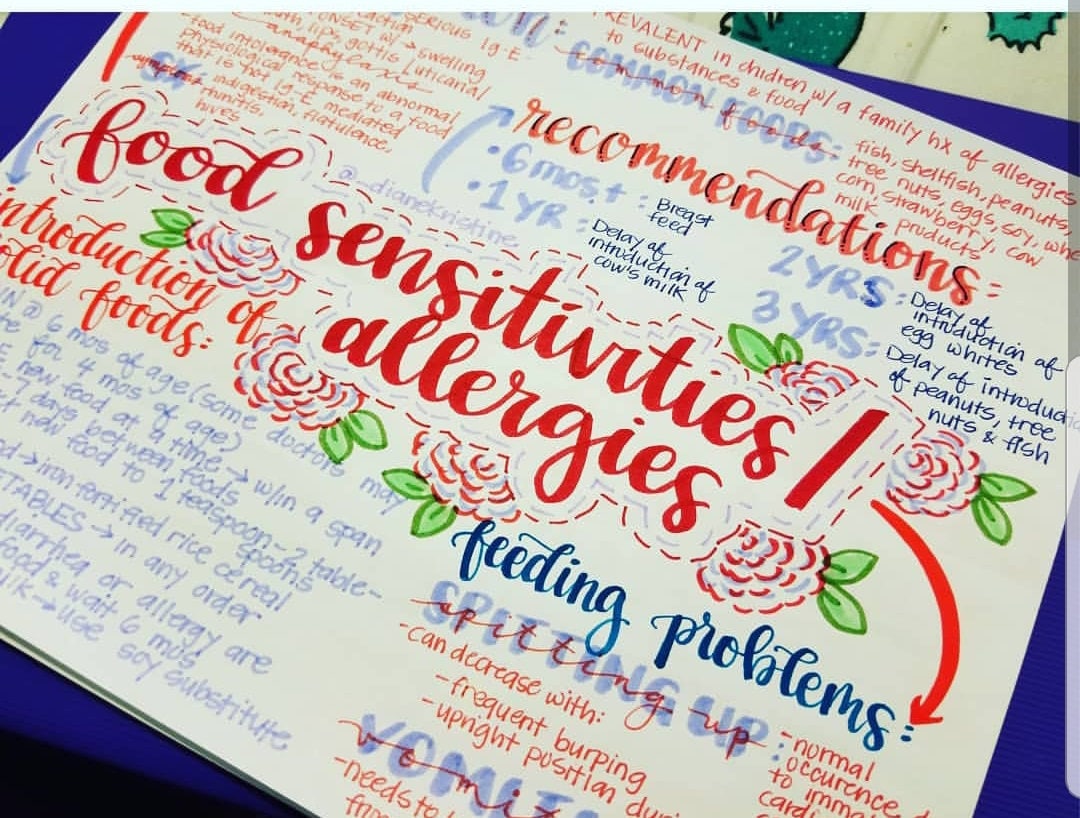 SERIOUS Ig-E
ONSET w/ → swelling
lips, gottis (uticaria)
anaphylaxis
- food intolerance is an abnormal
physiological response to a food
that is not Ig-E mediated
indigestion, flatulence,
rhinitis,
hives
PREVALENT in children w/ a family hx of allergies
to substances & food
COMMON FOODS:
common foods
fish, shellfish, peanuts,
tree nuts, eggs, soy,
corn, strawberry, cow
milk products
recommendations:
• 6 mos+: Breast
feed
• 1 YR: Delay of
introduction of
cow's milk
2 YRS: Delay of
introduction of
egg whites
3 YRS: Delay of
of peanuts, tree
nuts & fish
food
sensitivities /
allergies
@_dianekristine_
introduction of
solid foods:
@ 6 mos of age (some doctors may
for 4 mos of age)
new food at a time → w/in a span
-7 days between foods
new food to 1 teaspoon-2 table-
spoons
→ iron fortified rice cereal
→ in any order
diarrhea or allergy are
food & wait 6 mos
→ use soy substitute
feeding problems:
SPITTING UP:
spitting up
- can decrease with:
- frequent burping
- upright position
- normal
occurence
to
VOMIT
vomit
- needs to